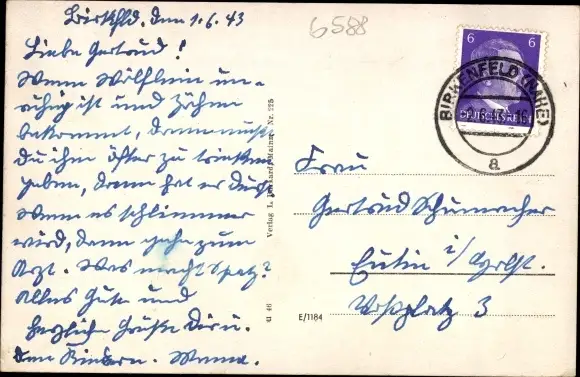 Birkfld. den 1.6.43
6588
Liebe Gertrud!
Wenn Wölflein un-
ruhig ist und Zähne
bekommt, dann mußt
Du ihm öfter zu trinken
geben, dann hat er Durst.
Wenn es schlimmer
wird, dann gehe zum
Arzt. Was macht Spatz?
Alles Gute und
herzliche Grüße Dir u.
den Kindern.
6 6
DEUTSCHES REICH
BIRKENFELD (NAHE)
a
Verlag L. Mainz, Nr. 225
41 46
E/1184
Frau
Gertrud Schumacher
Eutin i/Holst.
Voßplatz 3